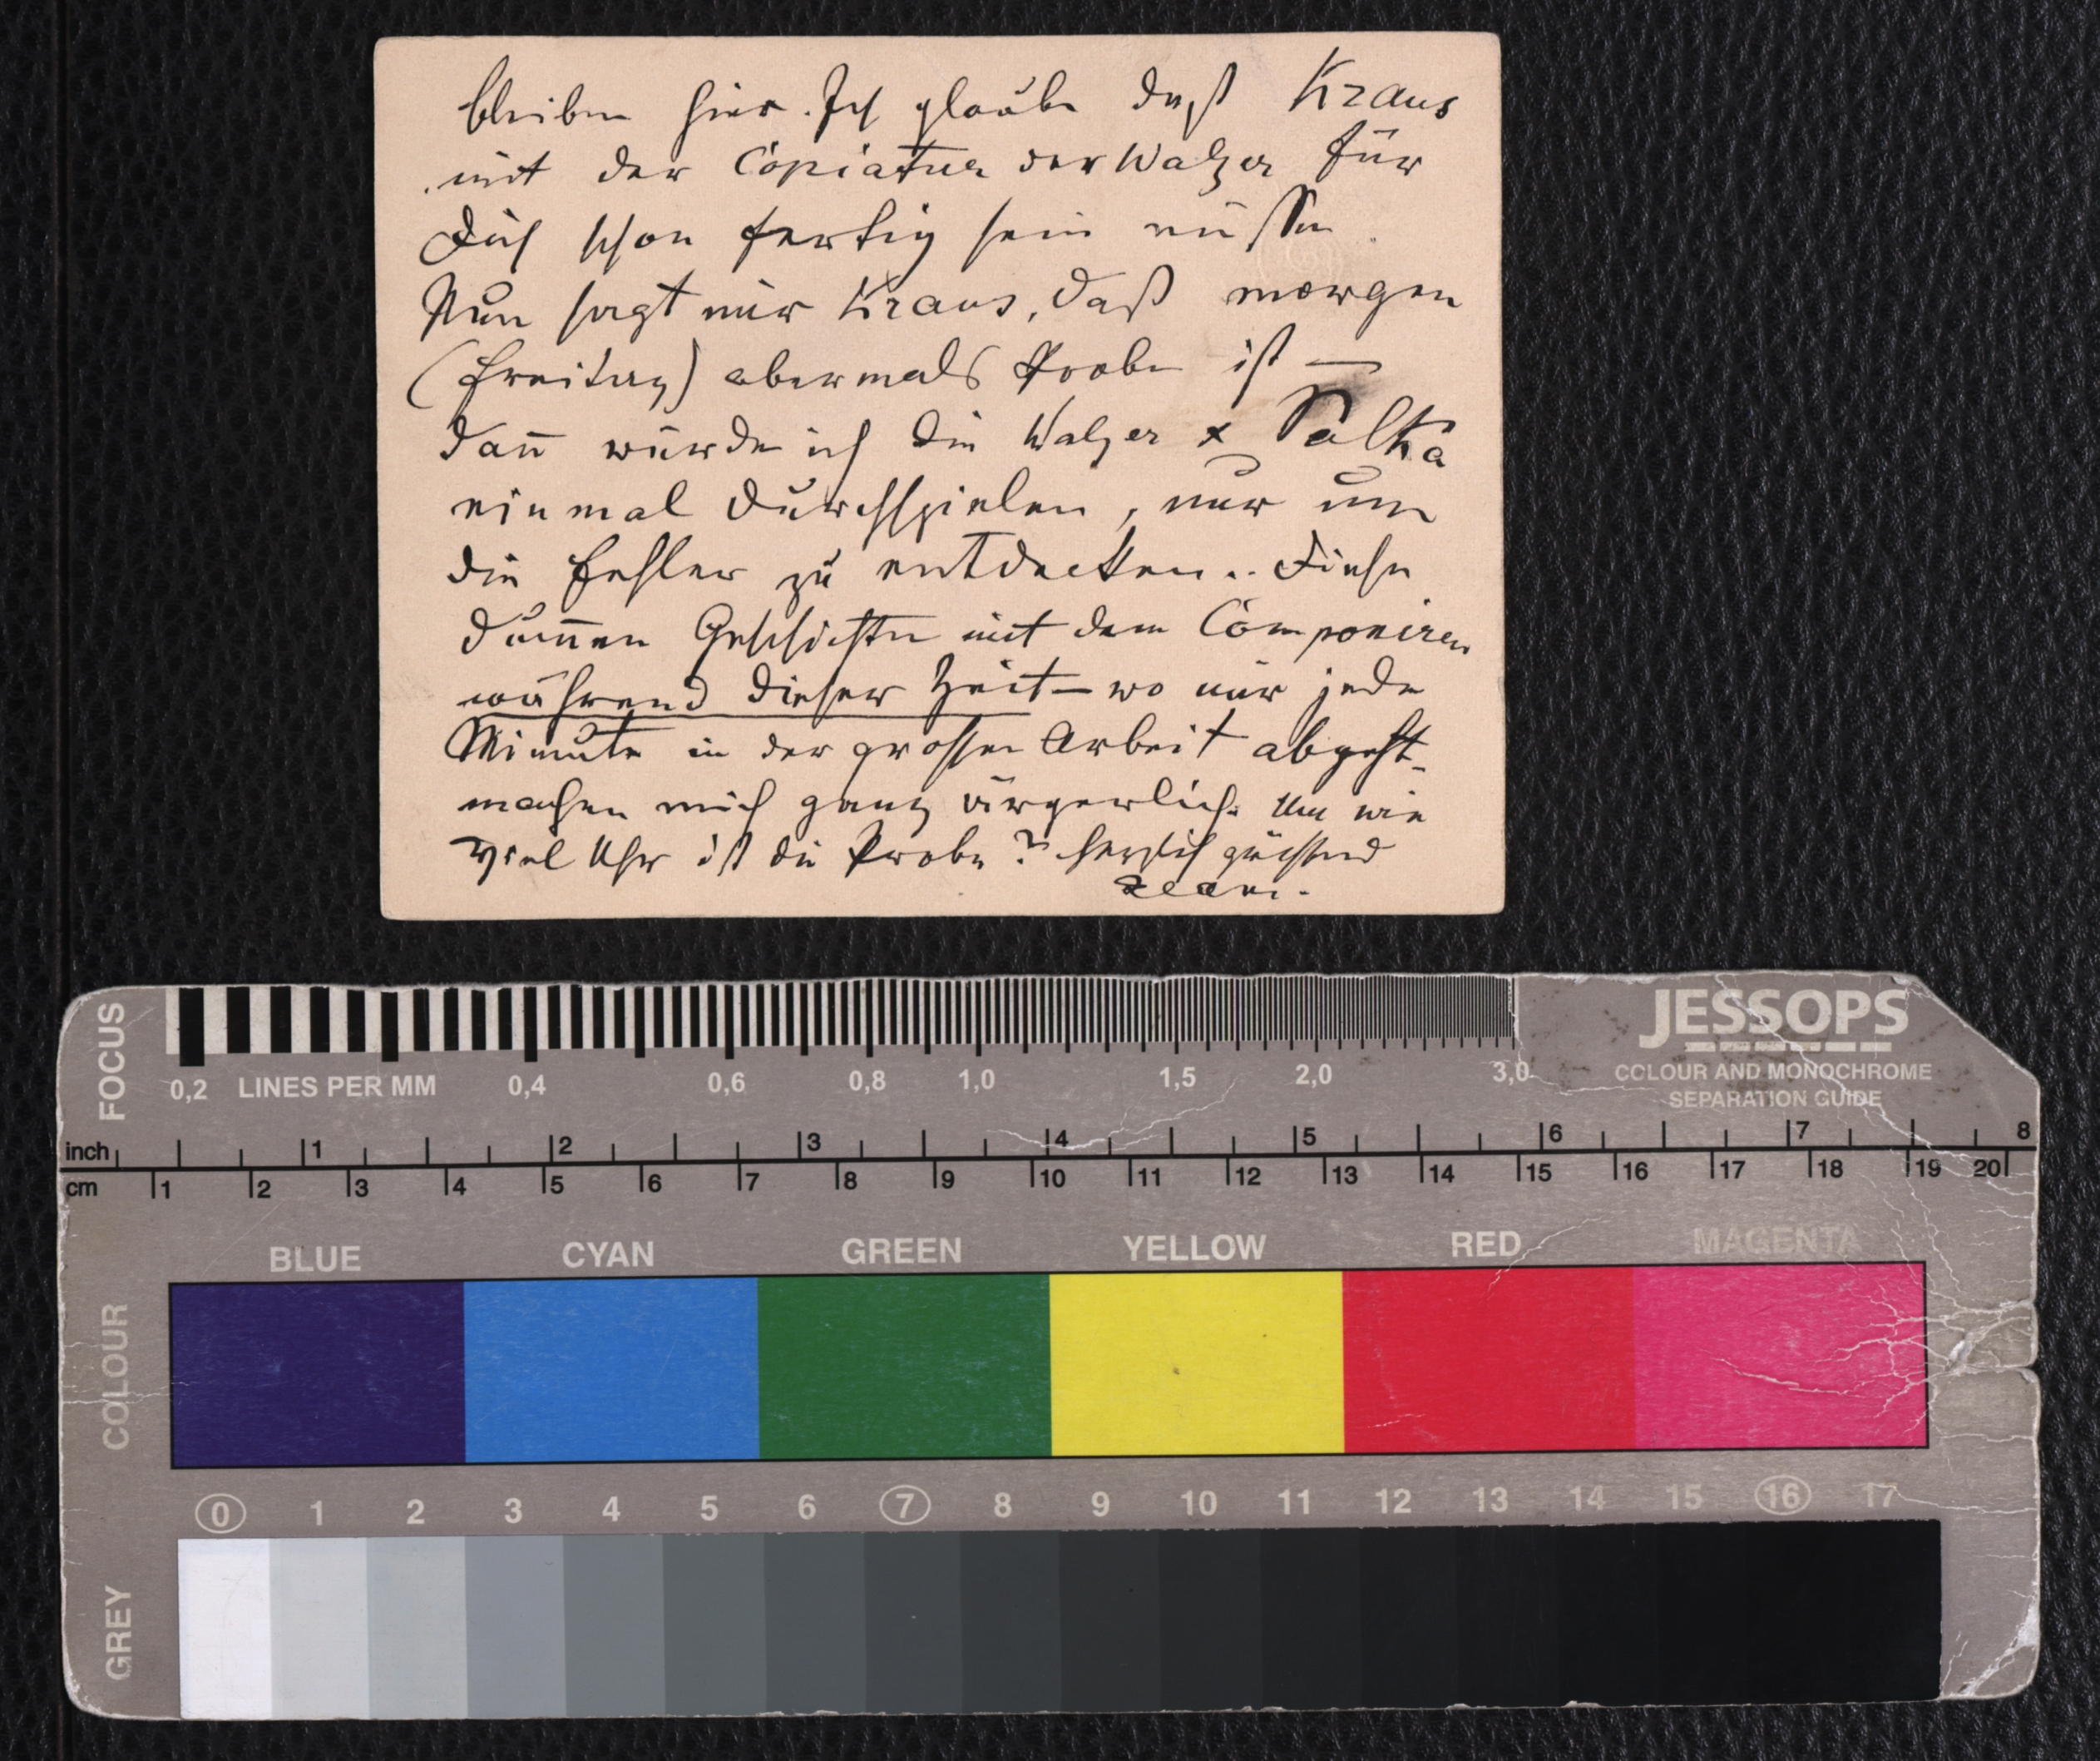 bleiben hier. Ich glaube daß Kraus
mit der Copiatur der Walzer für
Dich schon fertig sein müßte.
Nun sagt mir Kraus, daß morgen
(Freitag) abermals Probe ist —
dan̄ würde ich die Walzer & Polka
einmal durchspielen, nur um
die Fehler zu entdecken.. Diese
dum̄en Geschichten mit dem Componiren
während dieser Zeit – wo mir jede
Minute in der grossen Arbeit abgeht –
machen mich ganz ärgerlich. Um wie
viel Uhr ist die Probe? Herzlich grüssend
Jean.
FOCUS
0,2 LINES PER MM 0,4 0,6 0,8 1,0 1,5 2,0 3,0
JESSOPS
COLOUR AND MONOCHROME
SEPARATION GUIDE
inch 1 2 3 4 5 6 7 8
cm 1 2 3 4 5 6 7 8 9 10 11 12 13 14 15 16 17 18 19 20
BLUE CYAN GREEN YELLOW RED MAGENTA
COLOUR
0 1 2 3 4 5 6 7 8 9 10 11 12 13 14 15 16 17
GREY